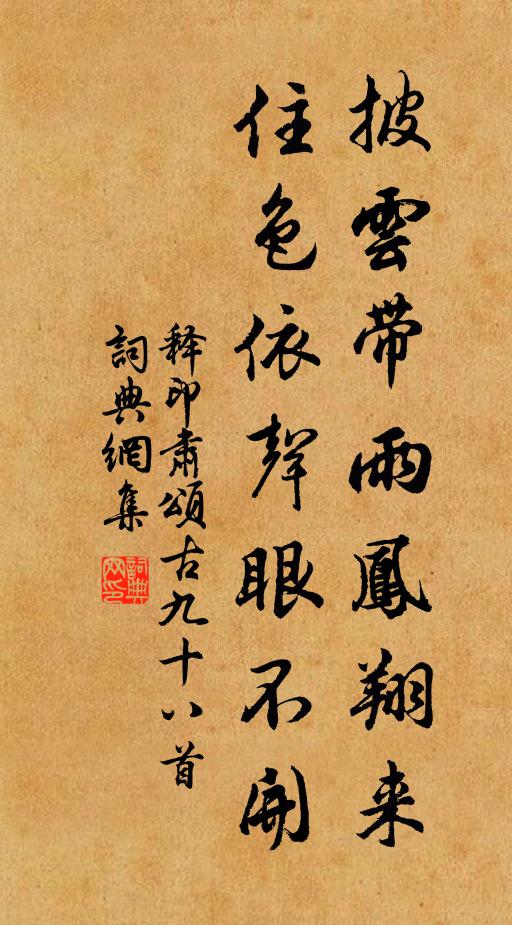 披雲带雨鳳翔来
住色依聲眼不開
释印肅頌古九十八首
詞典網集
詞典网印